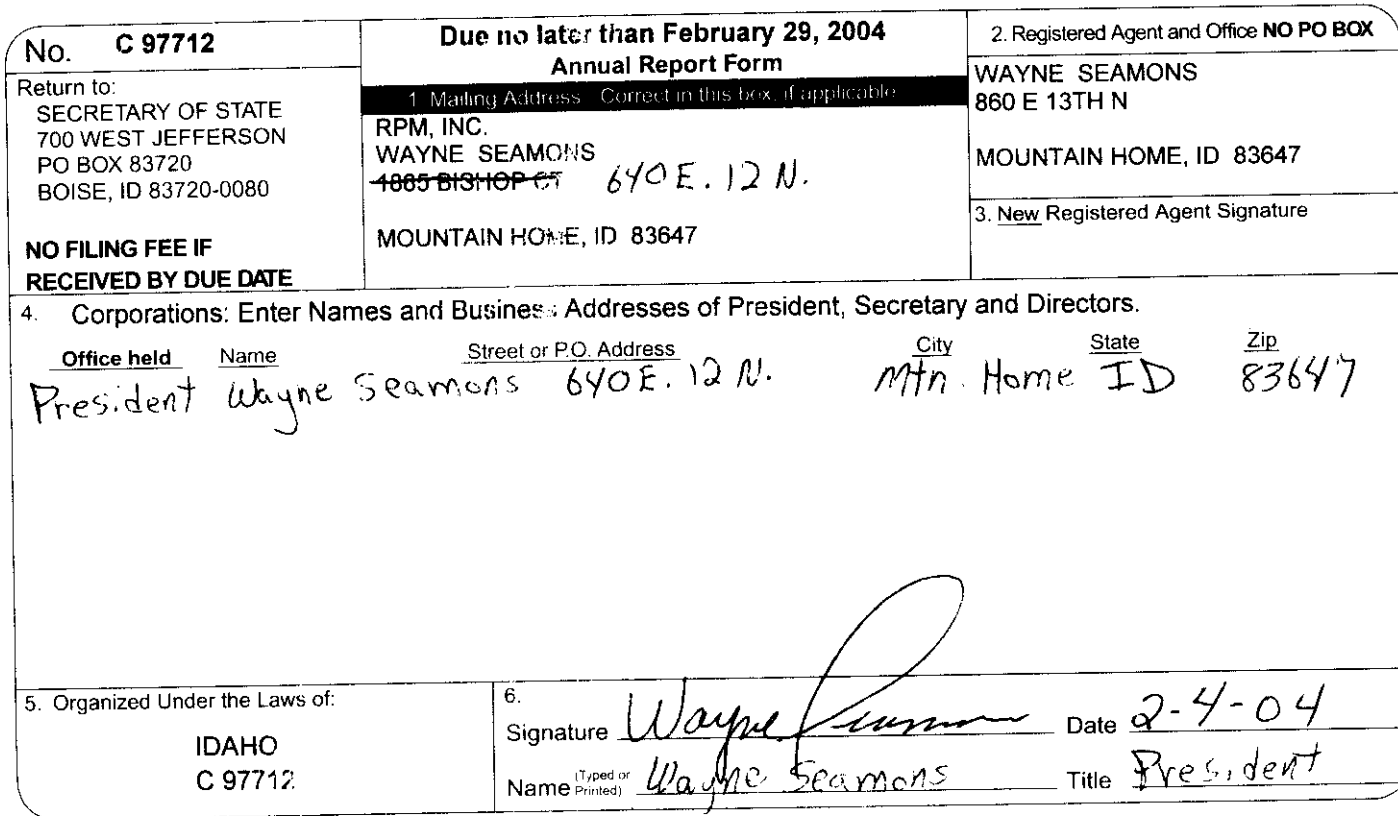 No. C 97712
Return to:
SECRETARY OF STATE
700 WEST JEFFERSON
PO BOX 83720
BOISE, ID 83720-0080
NO FILING FEE IF
RECEIVED BY DUE DATE
Due no later than February 29, 2004
Annual Report Form
1 Mailing Address Correct in this box, if applicable
RPM, INC.
WAYNE SEAMONS
1865 BISHOP CT 640 E. 12 N.
MOUNTAIN HOME, ID 83647
2. Registered Agent and Office NO PO BOX
WAYNE SEAMONS
860 E 13TH N
MOUNTAIN HOME, ID 83647
3. New Registered Agent Signature
4. Corporations: Enter Names and Business Addresses of President, Secretary and Directors.
Office held Name Street or P.O. Address City State Zip
President Wayne Seamons 640 E. 12 N. Mtn. Home ID 83647
5. Organized Under the Laws of:
IDAHO
C 97712
6.
Signature Wayne Seamons Date 2-4-04
Name (Typed or Printed) Wayne Seamons Title President